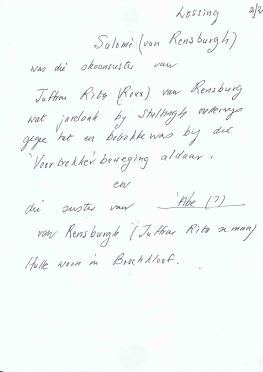 Lessing 2/2
Salomé (van Rensburgh)
was die skoonsuster van
Juffrou Rita (Roux) van Rensburg
wat jarelank by Stellingh onderwys
gegee het en betrokke was by die
'Voortrekker' beweging aldaar.
en
die suster van 'Abe (?)
van Rensburgh (Juffrou Rita se man)
Hulle woon in Boschkloof.